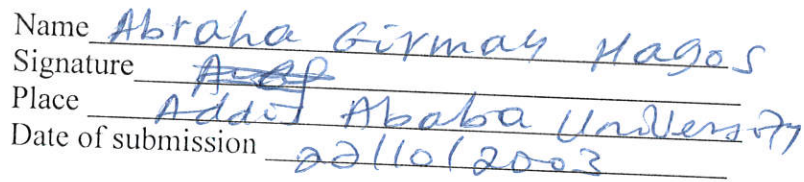 Name Abraha Girmay Hagos
Signature
Place Addis Ababa University
Date of submission 22/10/2003